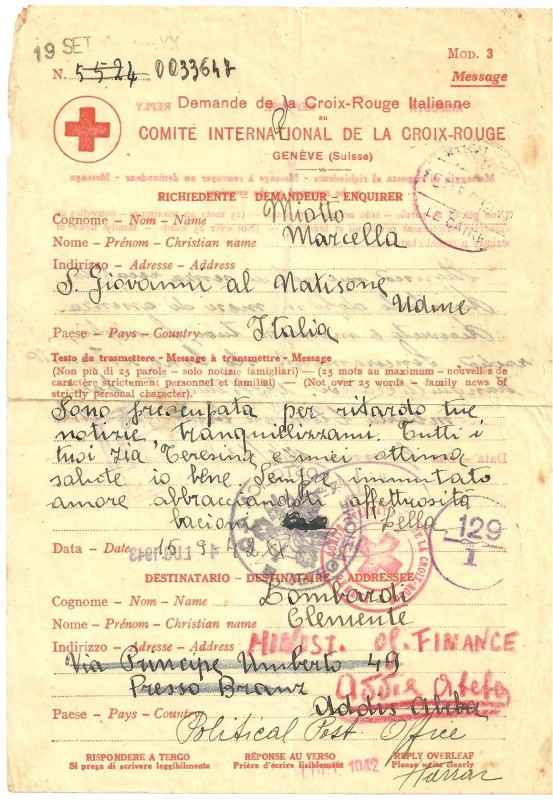 19 SET
MOD. 3
N. 5524 0033647
Message
Demande de la Croix-Rouge Italienne
au
COMITÉ INTERNATIONAL DE LA CROIX-ROUGE
GENÈVE (Suisse)
RICHIEDENTE - DEMANDEUR - ENQUIRER
LE CAIRE
Cognome - Nom - Name Miatto
Nome - Prénom - Christian name Marcella
Indirizzo - Adresse - Address
S. Giovanni al Natisone
Udine
Paese - Pays - Country Italia
Testo da trasmettere - Message à transmettre - Message
(Non più di 25 parole - solo notizie famigliari) - (25 mots au maximum - nouvelles de
caractère strictement personnel et familial) - (Not over 25 words - family news of
strictly personal character).
Sono preocupata per ritardo tue
notizie tranquillizzami. Tutti i
tuoi zia Teresina e miei ottima
salute io bene. Sempre immutato
amore abbracciandoti affettuosità
bacioni
Data - Date 15.9.42
LUG 1943
129
1
DESTINATARIO - DESTINATAIRE - ADDRESSEE
Cognome - Nom - Name Lombardi
Nome - Prénom - Christian name Clemente
Indirizzo - Adresse - Address MINIST. OF. FINANCE
Via Principe Umberto 49
Addis Abeba
Presso Branz
Addis Abeba
Paese - Pays - Country
Political Post Office
Harrar
RISPONDERE A TERGO
Si prega di scrivere leggibilmente
RÉPONSE AU VERSO
Prière d'écrire lisiblement
REPLY OVERLEAF
Please write clearly
1942